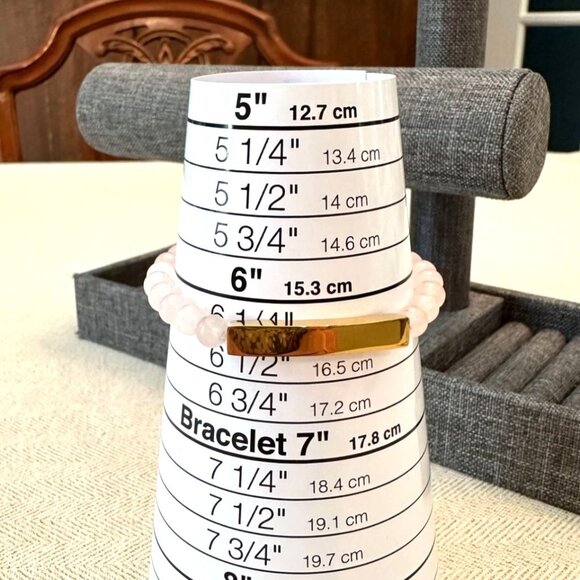 5" 12.7 cm
5 1/4" 13.4 cm
5 1/2" 14 cm
5 3/4" 14.6 cm
6" 15.3 cm
6 1/4"
6 1/2" 16.5 cm
6 3/4" 17.2 cm
Bracelet 7" 17.8 cm
7 1/4" 18.4 cm
7 1/2" 19.1 cm
7 3/4" 19.7 cm
8"